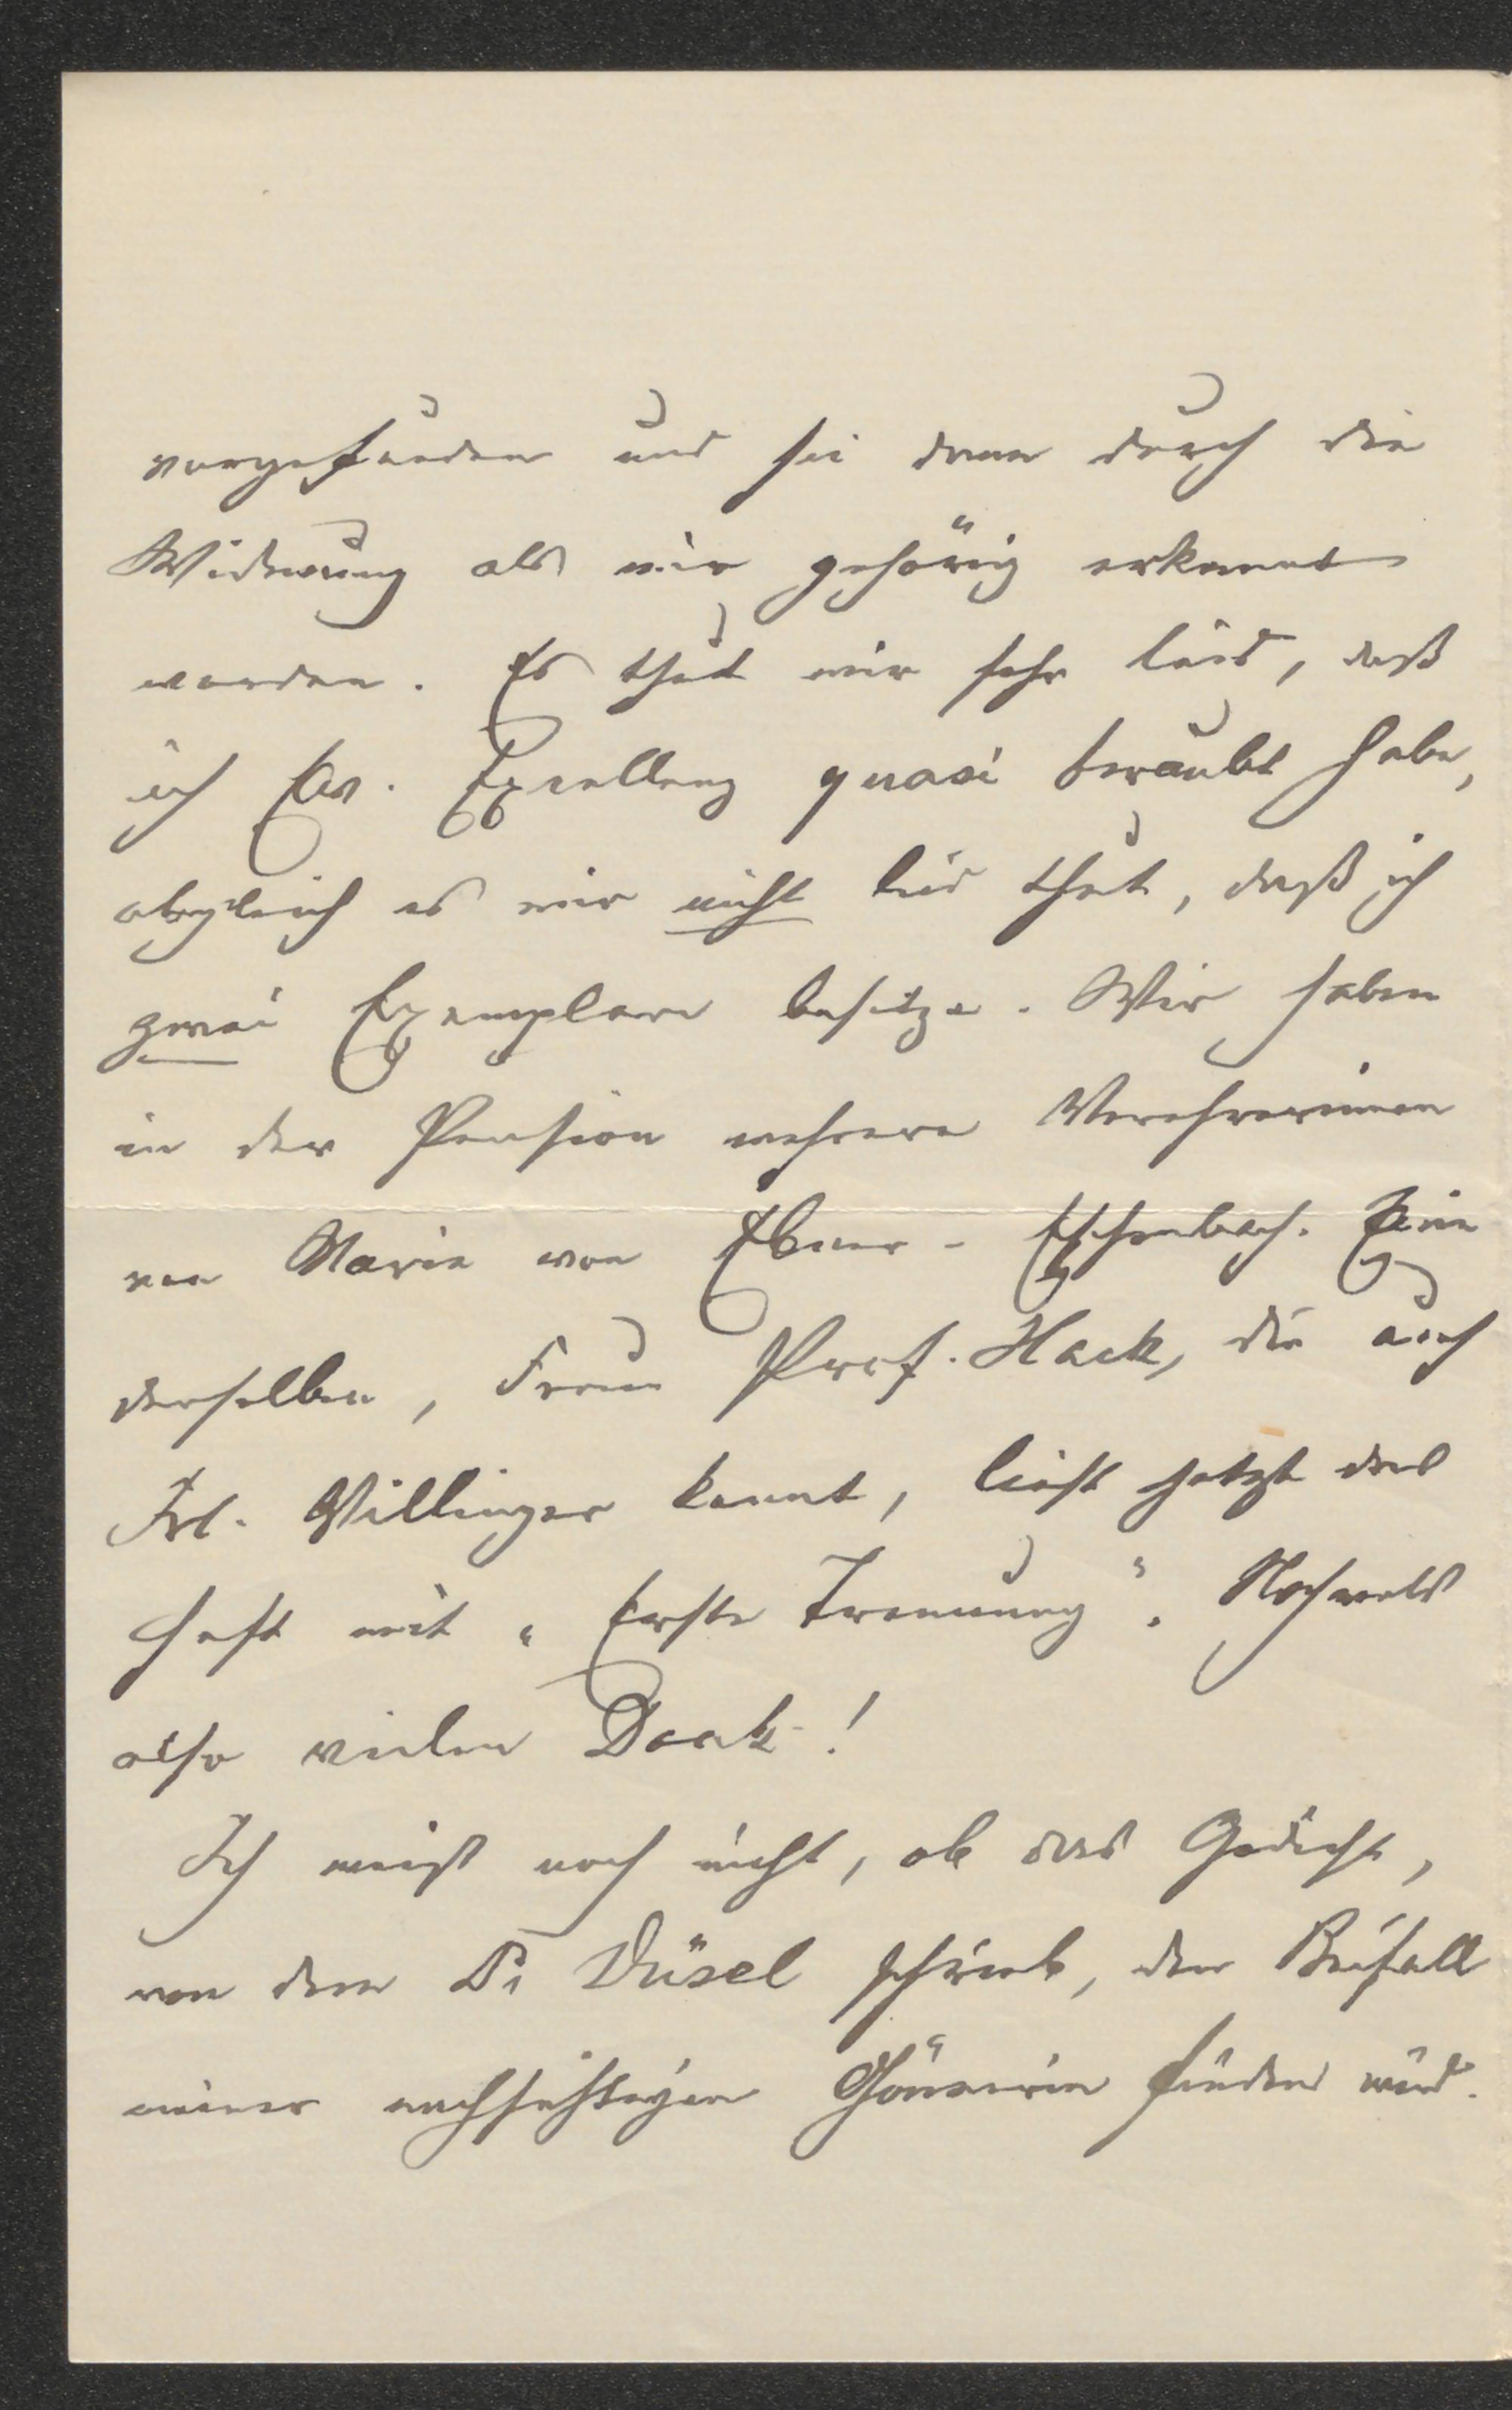 vorgefunden und sie dann durch die
Widmung als mir gehörig erkannt
worden. Es thut mir sehr leid, daß
ich Ew. Exzellenz quasi beraubt habe,
obgleich es mir nicht leid thut, daß ich
zwei Exemplare besitze. Wir haben
in der Pension mehrere Verehrerinnen
von Marie von Ebner-Eschenbach. Eine
derselben, Frau Prof. Hack, die auch
Frl. Villinger kennt, liest jetzt das
Heft mit „Erste Trennung". Nochmals
also vielen Dank!
Ich weiß noch nicht, ob das Gedicht,
von dem Dr Düsel schrieb, den Beifall
meiner nachsichtigen Gönnerin finden wird.